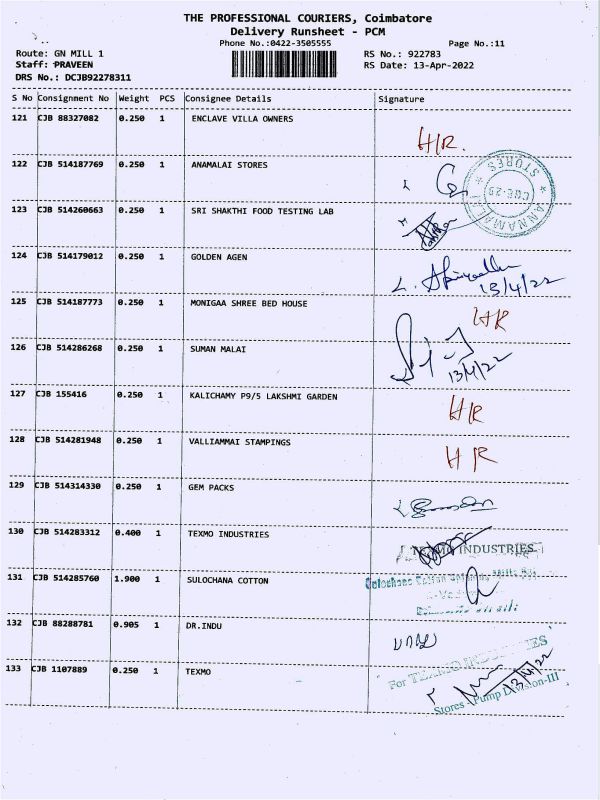 THE PROFESSIONAL COURIERS, Coimbatore
Delivery Runsheet - PCM
Phone No.:0422-3505555 Page No.:11
Route: GN MILL 1 RS No.: 922783
Staff: PRAVEEN RS Date: 13-Apr-2022
DRS No.: DCJB92278311
S No Consignment No Weight PCS Consignee Details Signature
121 CJB 88327082 0.250 1 ENCLAVE VILLA OWNERS
H/R.
122 CJB 514187769 0.250 1 ANAMALAI STORES
STORES * ANNAMALAI *
123 CJB 514260663 0.250 1 SRI SHAKTHI FOOD TESTING LAB
124 CJB 514179012 0.250 1 GOLDEN AGEN
13/4/22
125 CJB 514187773 0.250 1 MONIGAA SHREE BED HOUSE
H/R
126 CJB 514286268 0.250 1 SUMAN MALAI
13/4/22
127 CJB 155416 0.250 1 KALICHAMY P9/5 LAKSHMI GARDEN
H/R
128 CJB 514281948 0.250 1 VALLIAMMAI STAMPINGS
H R
129 CJB 514314330 0.250 1 GEM PACKS
130 CJB 514283312 0.400 1 TEXMO INDUSTRIES
TEXMO INDUSTRIES
131 CJB 514285760 1.900 1 SULOCHANA COTTON
132 CJB 88288781 0.905 1 DR.INDU
133 CJB 1107889 0.250 1 TEXMO
For TEXMO INDUSTRIES
13/4/22
Stores - Pump Division-III